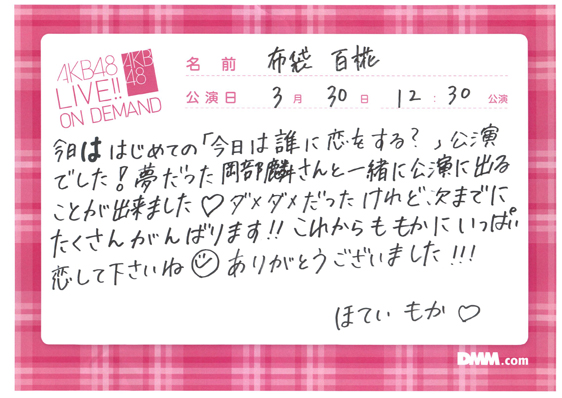 AKB48
LIVE!!
ON DEMAND
AKB
48
名前 布袋 百椛
公演日 3月 30日 12:30 公演
今日は はじめての「今日は誰に恋をする?」公演
でした!夢だった岡部麟さんと一緒に公演に出る
ことが出来ました♡ダメダメだったけれど、次までに
たくさんがんばります!!これからももかにいっぱい
恋して下さいね☺ありがとうございました!!!
ほてい もか♡
DMM.com